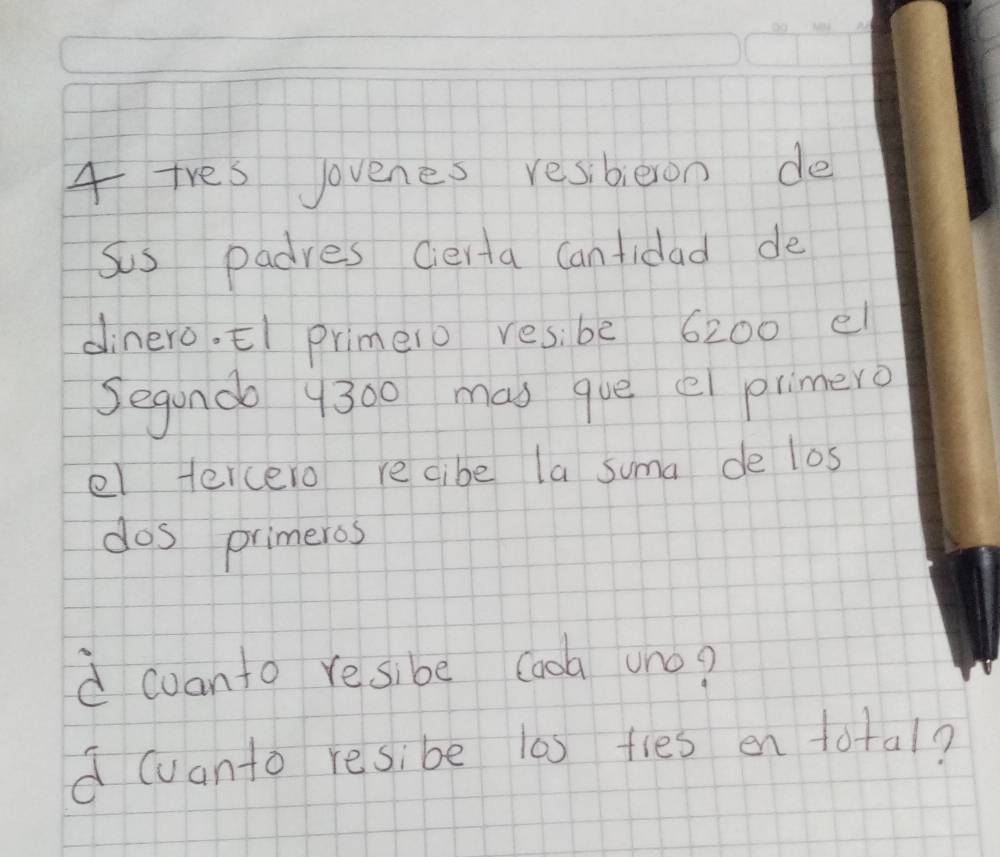 4 tres jovenes resibieron de
sus padres cierta cantidad de
dinero. El primero resibe 6200 el
Segundo 4300 mas que el primero
el tercero recibe la suma de los
dos primeros
¿ cuanto resibe cada uno?
¿ cuanto resibe los tres en total?